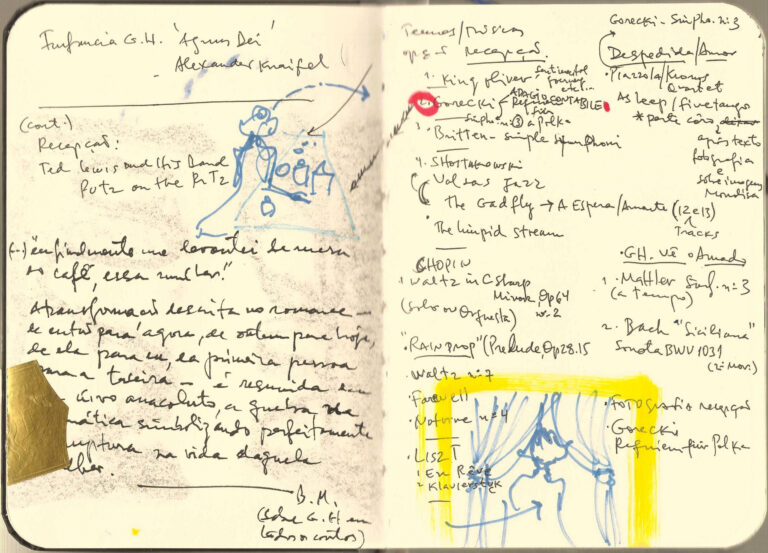 Infância G.H. 'Agnus Dei'
- Alexander Knaifel
(cont.)
Recepção:
Ted Lewis and His Band
Putz on the Ritz
(...) "enfim levantei da mesa
do café, essa mulher."
A transformação descrita no romance —
de então para agora, de ontem para hoje,
de ela para eu, da primeira pessoa
para a terceira — é resumida
anacoluto, a quebra da
simbolizando perfeitamente
ruptura na vida daquela
B.M.
(sobre G.H em
todos os contos)
Temas/Músicas
recepção.
1. King Oliver
sentimental
journey
etc...
2. Gorecki -
ADAGIO CANTABILE
Requiem
für
Sinphonia ③ a Polka
3. Britten - Simple Symphoni
4. Shostakowski
Valsas Jazz
The Gadfly → A Espera/Amante (12 e 13)
Tracks
The limpid stream
CHOPIN
Waltz in C Sharp
Minor Op 64
nº 2
(solo ou Orquestra)
"RAINDROP" (Prelude Op 28.15
Waltz nº 7
Farewell
Noturne nº 4
LISZT
1 En Rêve
2 Klavierstück
Gorecki - Sinpho. nº 3
Despedida/Amor
Piazzola/Kronos
Quartet
Asleep/five tango
* parte
após texto
fotografia
e
sobre imagem
GH. vê o Amado
1. Mahller Sinf. nº 3
(a tempo)
2. Bach "Siciliana"
Sonata BWV 1031
(2º Mov.)
Fotografia recepção
Gorecki
Requiem für Polka